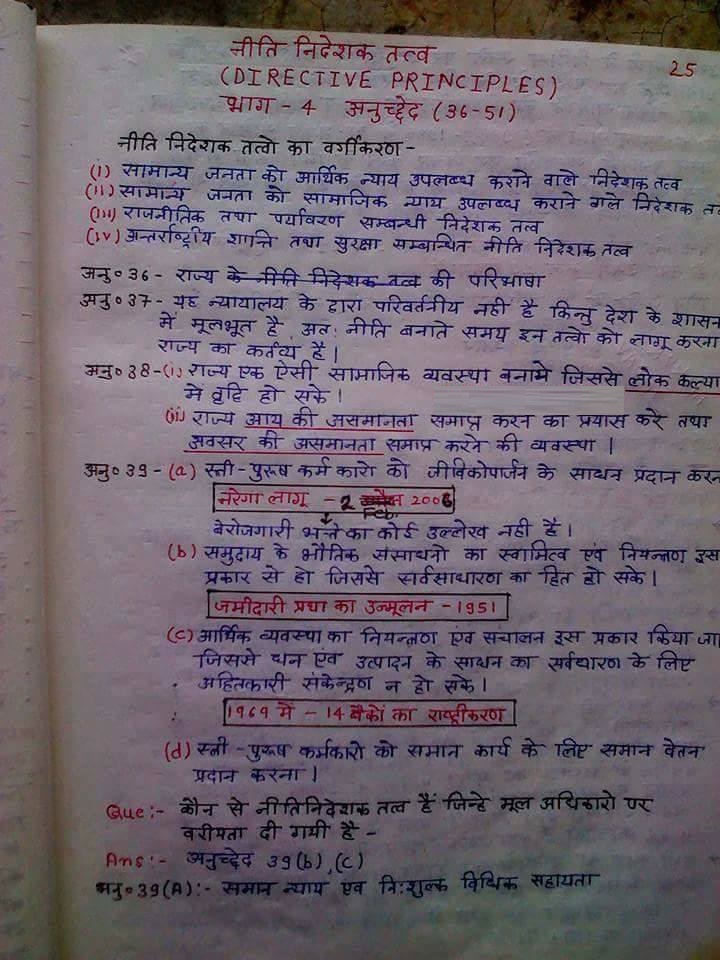 नीति निदेशक तत्व
25
(DIRECTIVE PRINCIPLES)
भाग - 4 अनुच्छेद (36-51)
नीति निदेशक तत्वो का वर्गीकरण -
(i) सामान्य जनता को आर्थिक न्याय उपलब्ध कराने वाले निदेशक तत्व
(ii) सामान्य जनता को सामाजिक न्याय उपलब्ध कराने वाले निदेशक
(iii) राजनीतिक तथा पर्यावरण सम्बन्धी निदेशक तत्व
(iv) अन्तर्राष्ट्रीय शान्ति तथा सुरक्षा सम्बन्धित नीति निदेशक तत्व
अनु० 36 - राज्य के नीति निदेशक तत्व की परिभाषा
अनु० 37 - यह न्यायालय के द्वारा परिवर्तनीय नहीं है किन्तु देश के शासन
में मूलभूत है अतः नीति बनाते समय इन तत्वो को लागू करना
राज्य का कर्तव्य है।
अनु० 38 - (i) राज्य एक ऐसी सामाजिक व्यवस्था बनाये जिससे लोक कल्या
में वृद्दि हो सके।
(ii) राज्य आय की असमानता समाप्त करन का प्रयास करे तथा
अवसर की असमानता समाप्त करने की व्यवस्था।
अनु० 39 - (a) स्त्री - पुरूष कर्मकारो को जीविकोपार्जन के साधन प्रदान करन
नरेगा लागू - 2 2006
Feb.
बेरोजगारी भत्ते का कोई उल्लेख नही है।
(b) समुदाय के भौतिक संसाधनो का स्वामित्व एवं नियन्त्रण इस
प्रकार से हो जिससे सर्वसाधारण का हित हो सके।
जमीदारी प्रथा का उन्मूलन - 1951
(c) आर्थिक व्यवस्था का नियन्त्रण एंव संचालन इस प्रकार किया जा
जिससे धन एंव उत्पादन के साधन का सर्वधारण के लिए
अहितकारी संकेन्द्रण न हो सके।
1969 में - 14 बैंकों का राष्ट्रीकरण
(d) स्त्री - पुरूष कर्मकारो को समान कार्य के लिए समान वेतन
प्रदान करना।
Que:- कौन से नीतिनिदेशक तत्व हैं जिन्हे मूल अधिकारो पर
वरीयता दी गयी है -
Ans:- अनुच्छेद 39(b), (c)
अनु० 39(A):- समान न्याय एंव नि:शुल्क विधिक सहायता